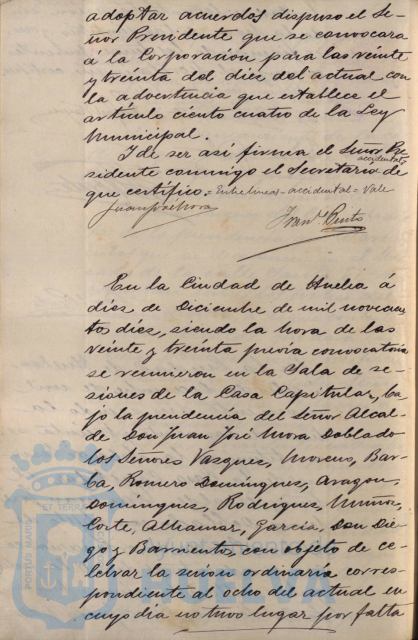 adoptar acuerdos dispuso el Se-
ñor Presidente que se convocara
á la Corporacion para las veinte
y treinta del diez del actual con
la advertencia que establece el
artículo ciento cuatro de la Ley
Municipal.
I de ser así firma el Señor Pre
accidental
sidente conmigo el Secretario de
que certifico.= Entre lineas = accidental = Vale
Fran.co Cinto
En la Ciudad de Huelva á
diez de Diciembre de mil novecien
tos diez, siendo la hora de las
veinte y treinta previa convocatoria
se reunieron en la Sala de se-
siones de la Casa Capitular, ba-
jo la presidencia del Señor Alcal-
de Don Juan José Mora Doblado
los Señores Vazquez, Moreno, Bar-
ba, Romero Dominguez, Aragon,
Dominguez, Rodriguez, Muñoz,
Corte, Alhamar, Garcia, Don Die-
go y Barriento, con objeto de ce-
lebrar la sesion ordinaria corres-
pondiente al ocho del actual en
cuyo dia no tuvo lugar por falta
PORTUS MARIS ET TERRAE